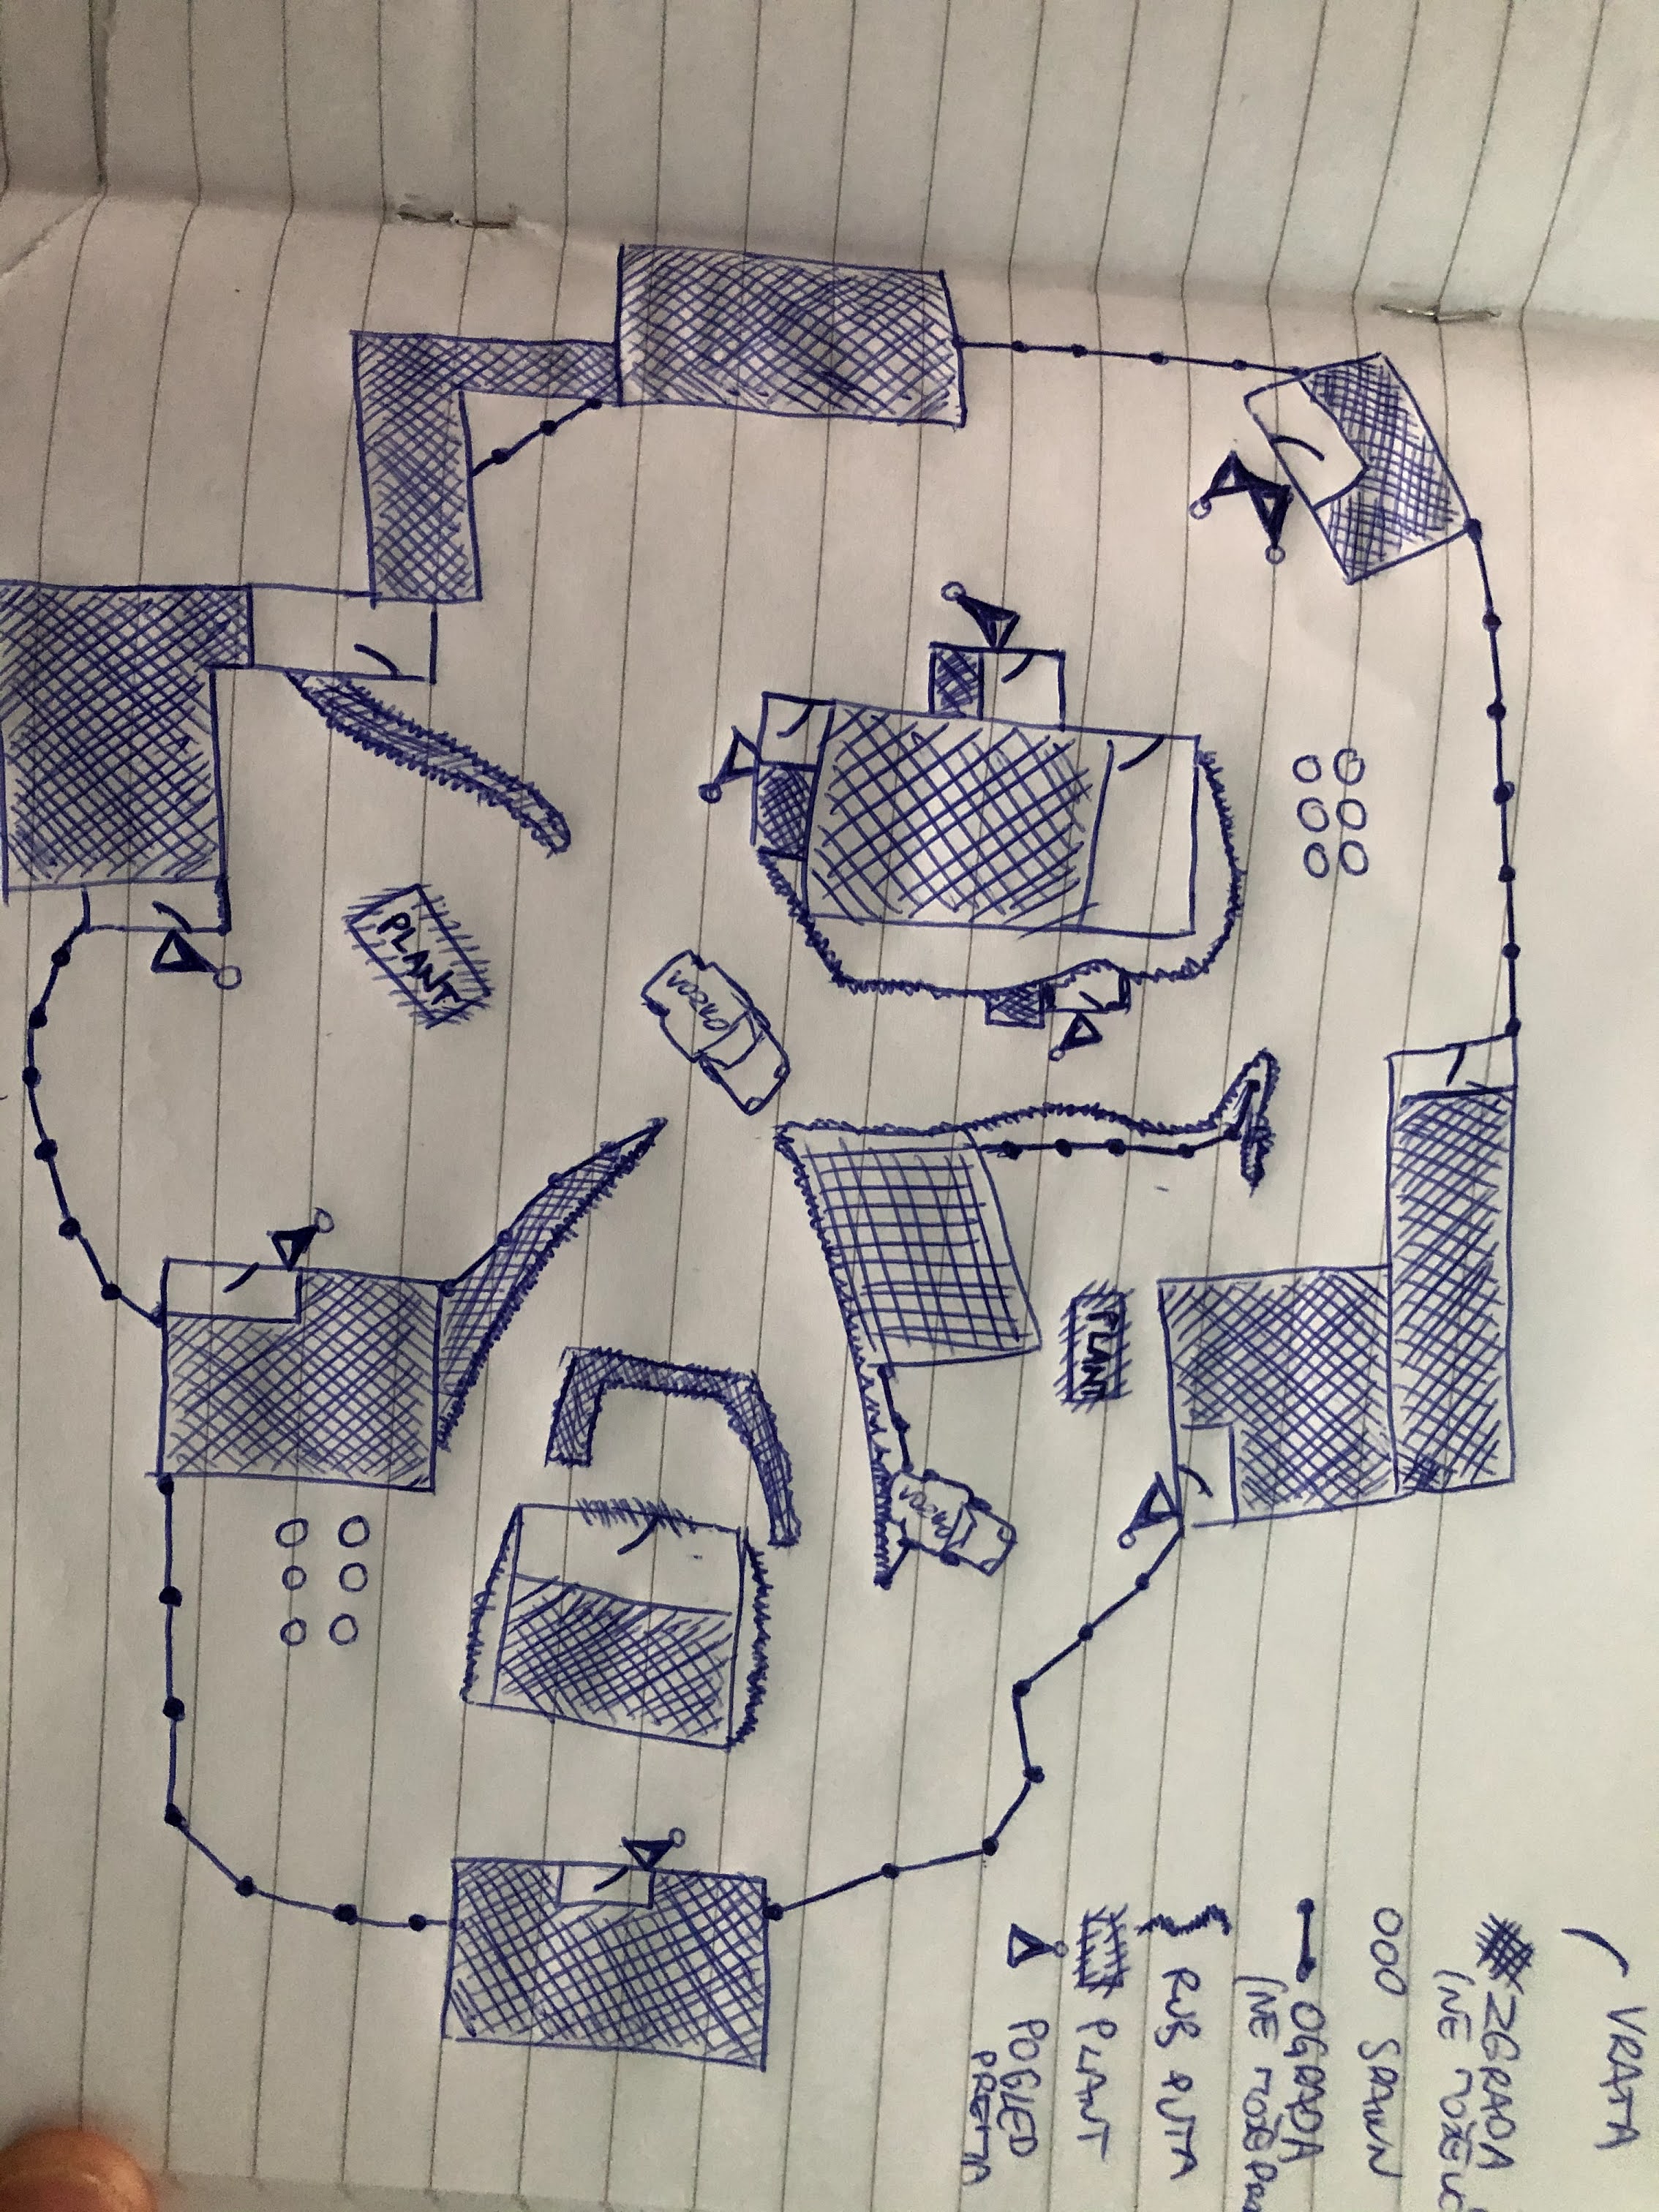 VRATA
ZGRADA
(NE MOŽE
OOO SPAWN
OGRADA
(NE MOŽE
RUB PUTA
PLANT
POGLED
PREMA
PLANT
VOZILO
VOZILO
PLANT